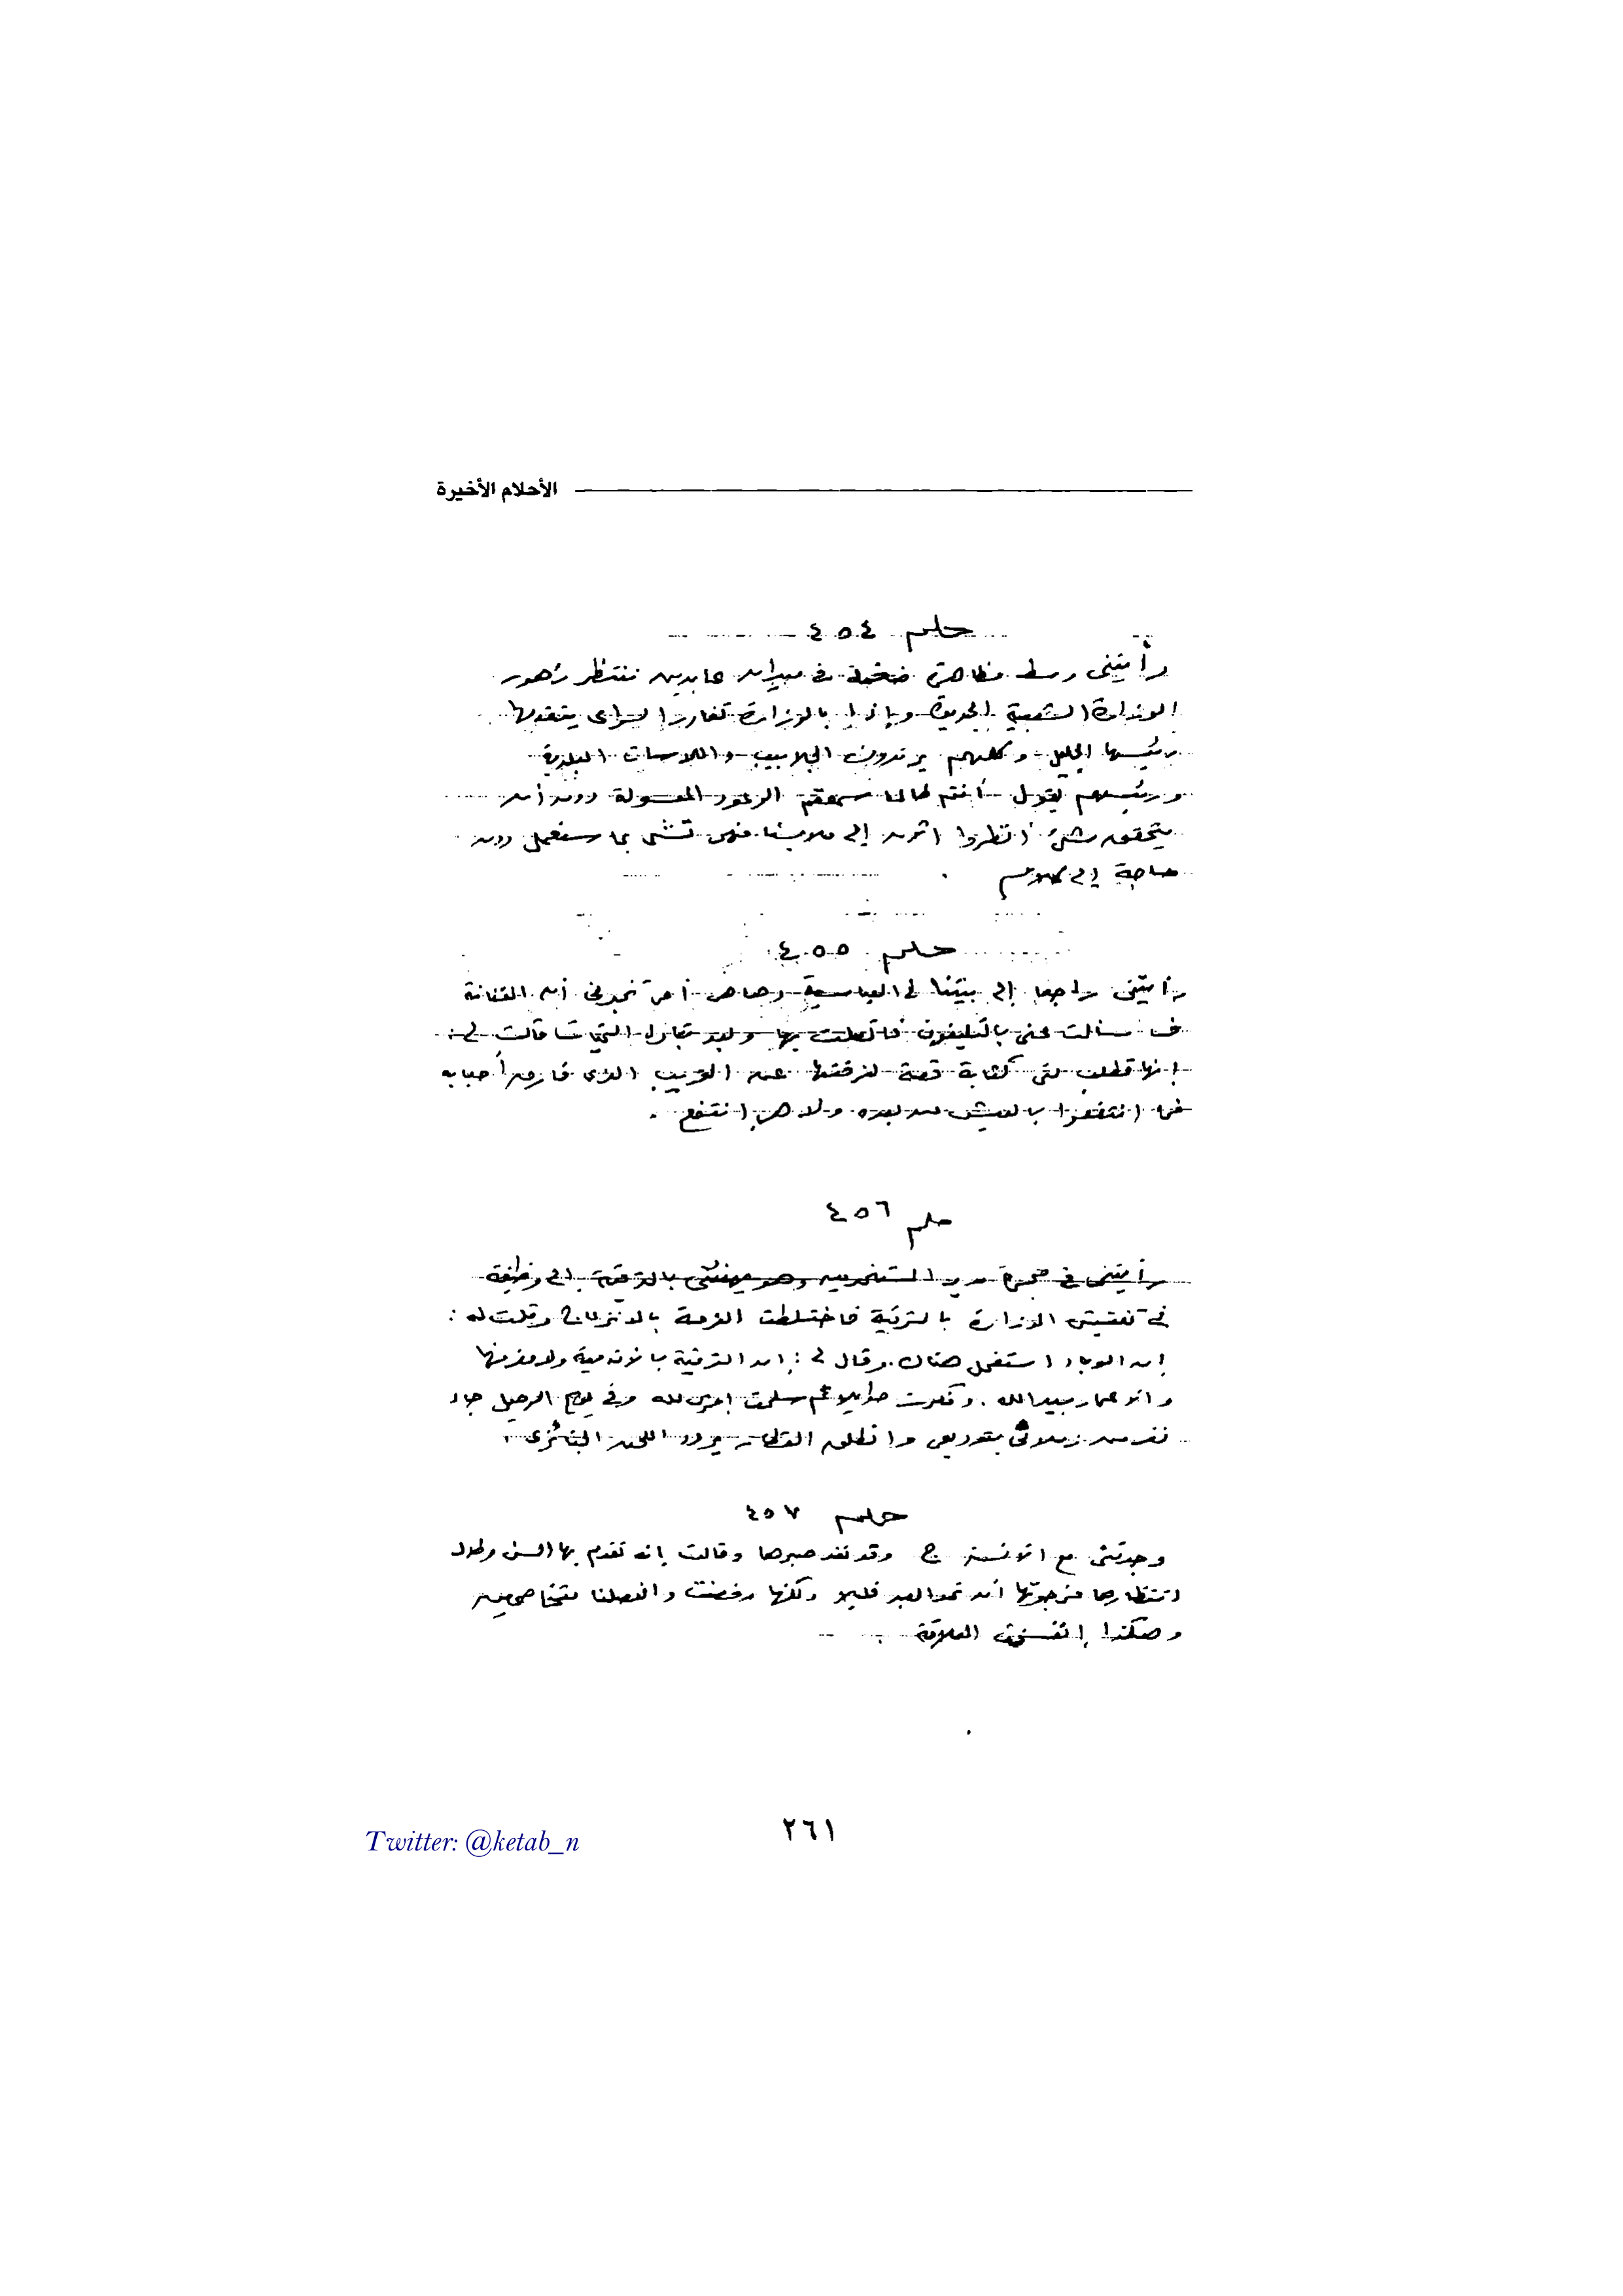 الأحلام الأخيرة
حلم ٤٥٤
رأيتنى وسط مظاهرة ضخمة فى ميدان عابدين ننتظر ظهور
الوزارة الشعبية الجديدة وإذا بالوزارة تغادر السراى يتقدمها
رئيسها الجليل وكلهم يرتدون الجلابيب واللاسات البلدية
ورئيسهم يقول أنتم طالما سمعتم الوعود المعسولة دون أن
يتحقق شىء انظروا الآن إلى ملابسنا فهى تنبئ بما سنعمل دون
حاجة إلى كلام
حلم ٤٥٥
رأيتنى راجعا إلى بيتنا فى العباسية وها هى أمى تخبرنى أن الفنانة
ف سألت عنى بالتليفون فاتصلت بها وبعد تبادل التحيات قالت لى:
إنها تطلب منى كتابة قصة عن الحبيب الذى فارق أحبابه
فما انتفعوا بالعيش من بعده ولا هو انتفع .
حلم ٤٥٦
رأيتنى فى حجرة مدير المستخدمين وهو يهنئنى بالترقية إلى وظيفة
فى تفتيش الوزارة بالترقية فاختلطت الفرحة بالانزعاج وقلت له :
إن الوباء استفحل هناك. وقال لى : إن الترقية بالأقدمية ولا مفر منها
والأعمار بيد الله . وفكرت طويلا ثم سلمت أمرى لله وفى يوم الرحيل جاء
نفر من زملائى بتوديعى وانطلق القطار يردد اللحن الجنائزى .
حلم ٤٥٧
وجدتنى مع الآنسة ج وقد نفد صبرها وقالت إنه تقدم بها السن وطال
انتظارها فرجوتها أن تمد الصبر قليلا ولكنها رفضت وانفصلنا متخاصمين
وهكذا انفسخت العلاقة
٢٦١
Twitter: @ketab_n